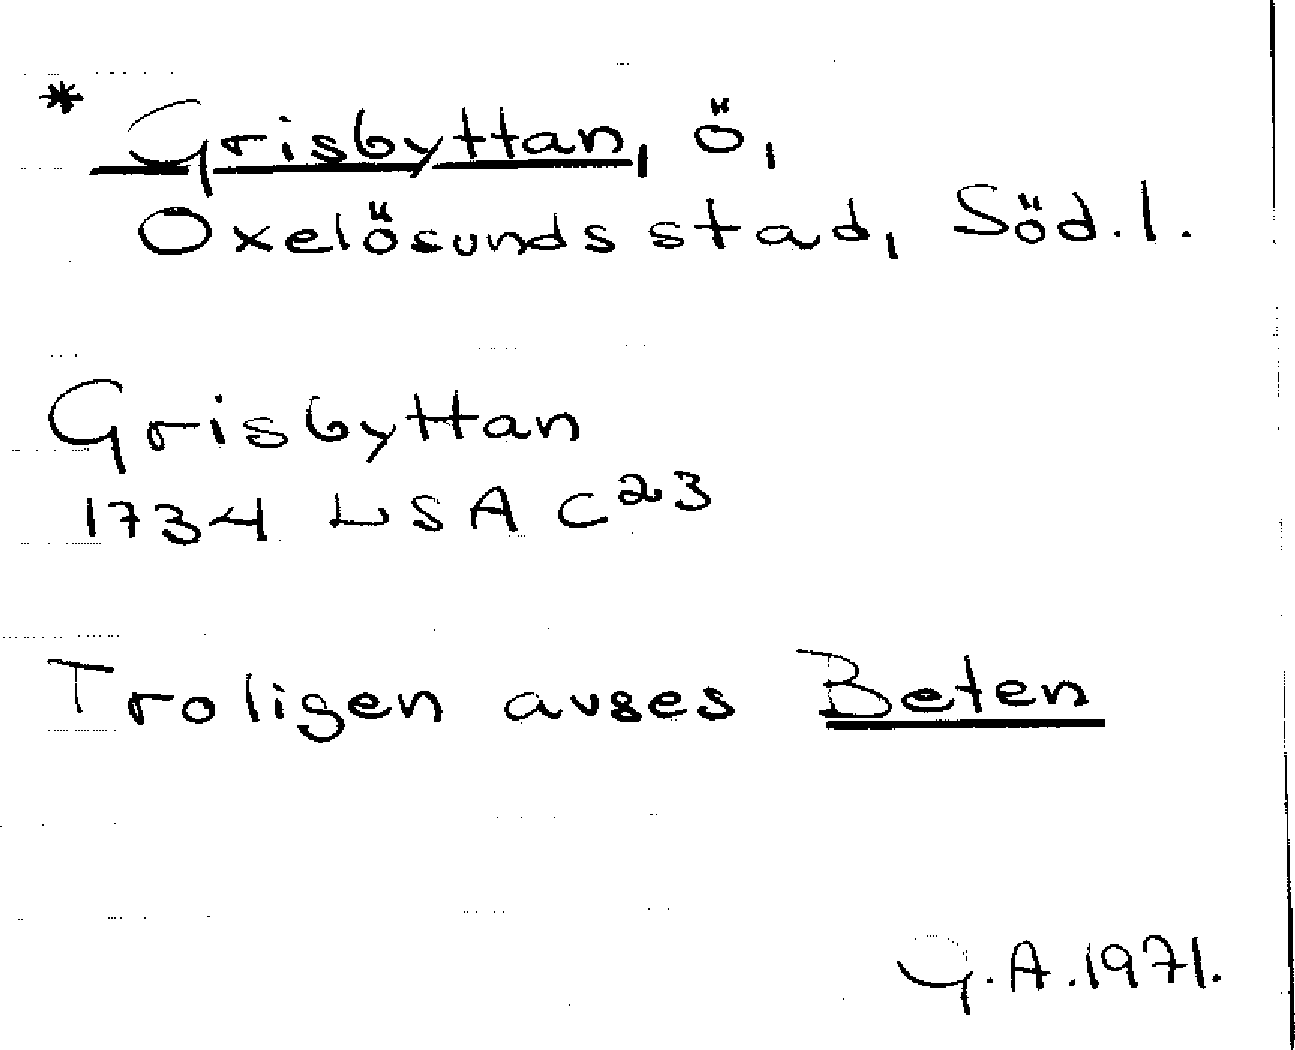 * Grisbyttan, ö,
Oxelösunds stad, Söd.l.
Grisbyttan
1734 LSA C²3
Troligen avses Beten
G.A.1971.